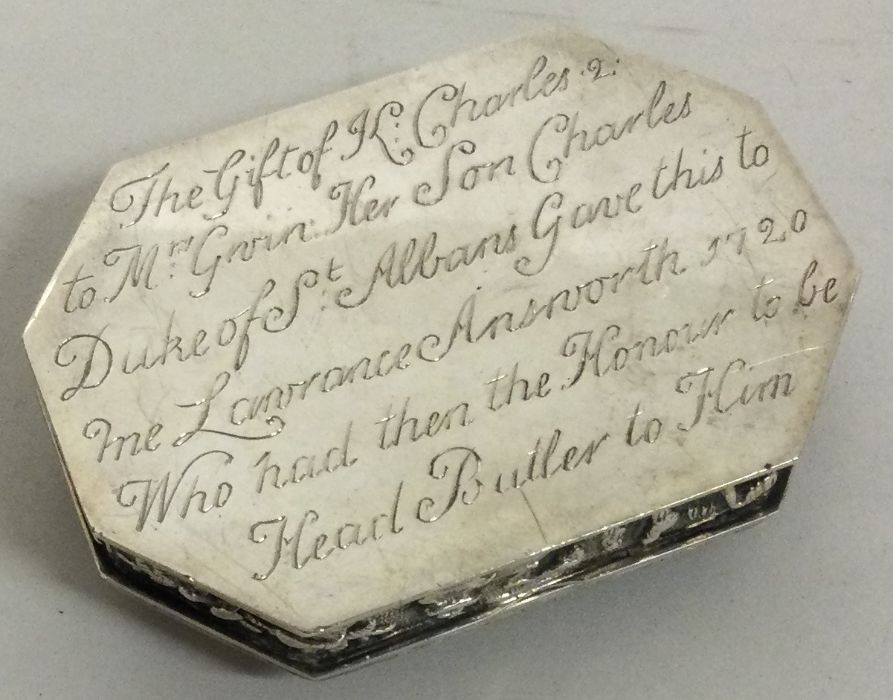 The Gift of K: Charles .2.
to Mrs Gwin: Her Son Charles
Duke of St Albans Gave this to
me Lawrance Answorth 1720
Who had then the Honour to be
Head Butler to Him